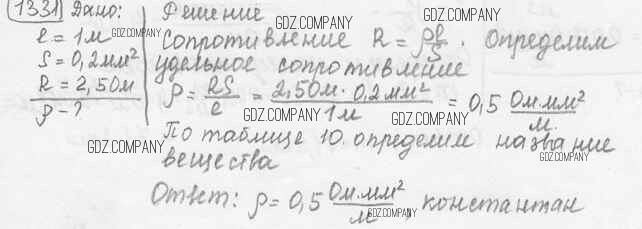 1331 Дано:
l = 1м
S = 0,2мм²
R = 2,5Ом
ρ - ?
Решение
Сопротивление R = ρl/S. Определим
удельное сопротивление
ρ = RS/l = 2,5Ом · 0,2мм²/1м = 0,5 Ом·мм²/м.
По таблице 10 определим название
вещества
Ответ: ρ = 0,5 Ом·мм²/м, константан
GDZ.COMPANY
GDZ.COMPANY
GDZ.COMPANY
GDZ.COMPANY
GDZ.COMPANY
GDZ.COMPANY
GDZ.COMPANY
GDZ.COMPANY
GDZ.COMPANY
GDZ.COMPANY